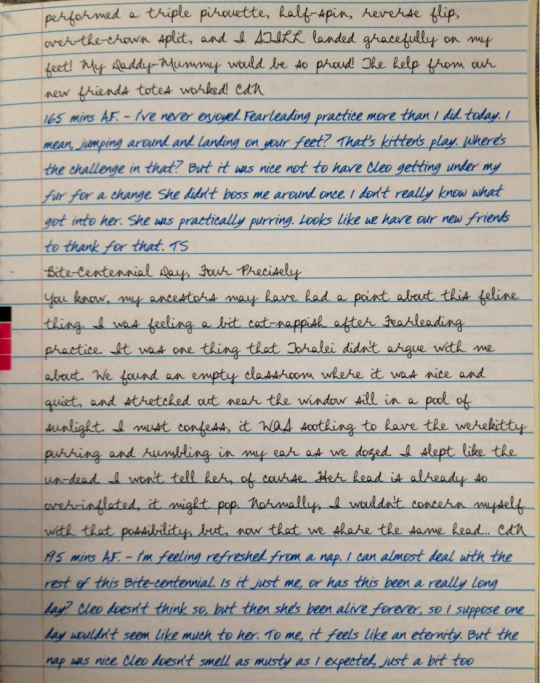 performed a triple pirouette, half-spin, reverse flip,
over-the-crown split, and I STILL landed gracefully on my
feet! My Daddy-Mummy would be so proud! The help from our
new friends totes worked! CdN
165 mins AF. - I've never enjoyed Fearleading practice more than I did today. I
mean, jumping around and landing on your feet? That's kitten's play. Where's
the challenge in that? But it was nice not to have Cleo getting under my
fur for a change. She didn't boss me around once. I don't really know what
got into her. She was practically purring. Looks like we have our new friends
to thank for that. TS
Bite-Centennial Day, Four Precisely
You know, my ancestors may have had a point about this feline
thing. I was feeling a bit cat-nappish after Fearleading
practice. It was one thing that Toralei didn't argue with me
about. We found an empty classroom where it was nice and
quiet, and stretched out near the window sill in a pool of
sunlight. I must confess, it WAS soothing to have the werekitty
purring and rumbling in my ear as we dozed. I slept like the
un-dead. I won't tell her, of course. Her head is already so
over-inflated, it might pop. Normally, I wouldn't concern myself
with that possibility, but, now that we share the same head... CdN
195 mins AF. - I'm feeling refreshed from a nap. I can almost deal with the
rest of this Bite-centennial. Is it just me, or has this been a really long
day? Cleo doesn't think so, but then she's been alive forever, so I suppose one
day wouldn't seem like much to her. To me, it feels like an eternity. But the
nap was nice. Cleo doesn't smell as musty as I expected, just a bit too